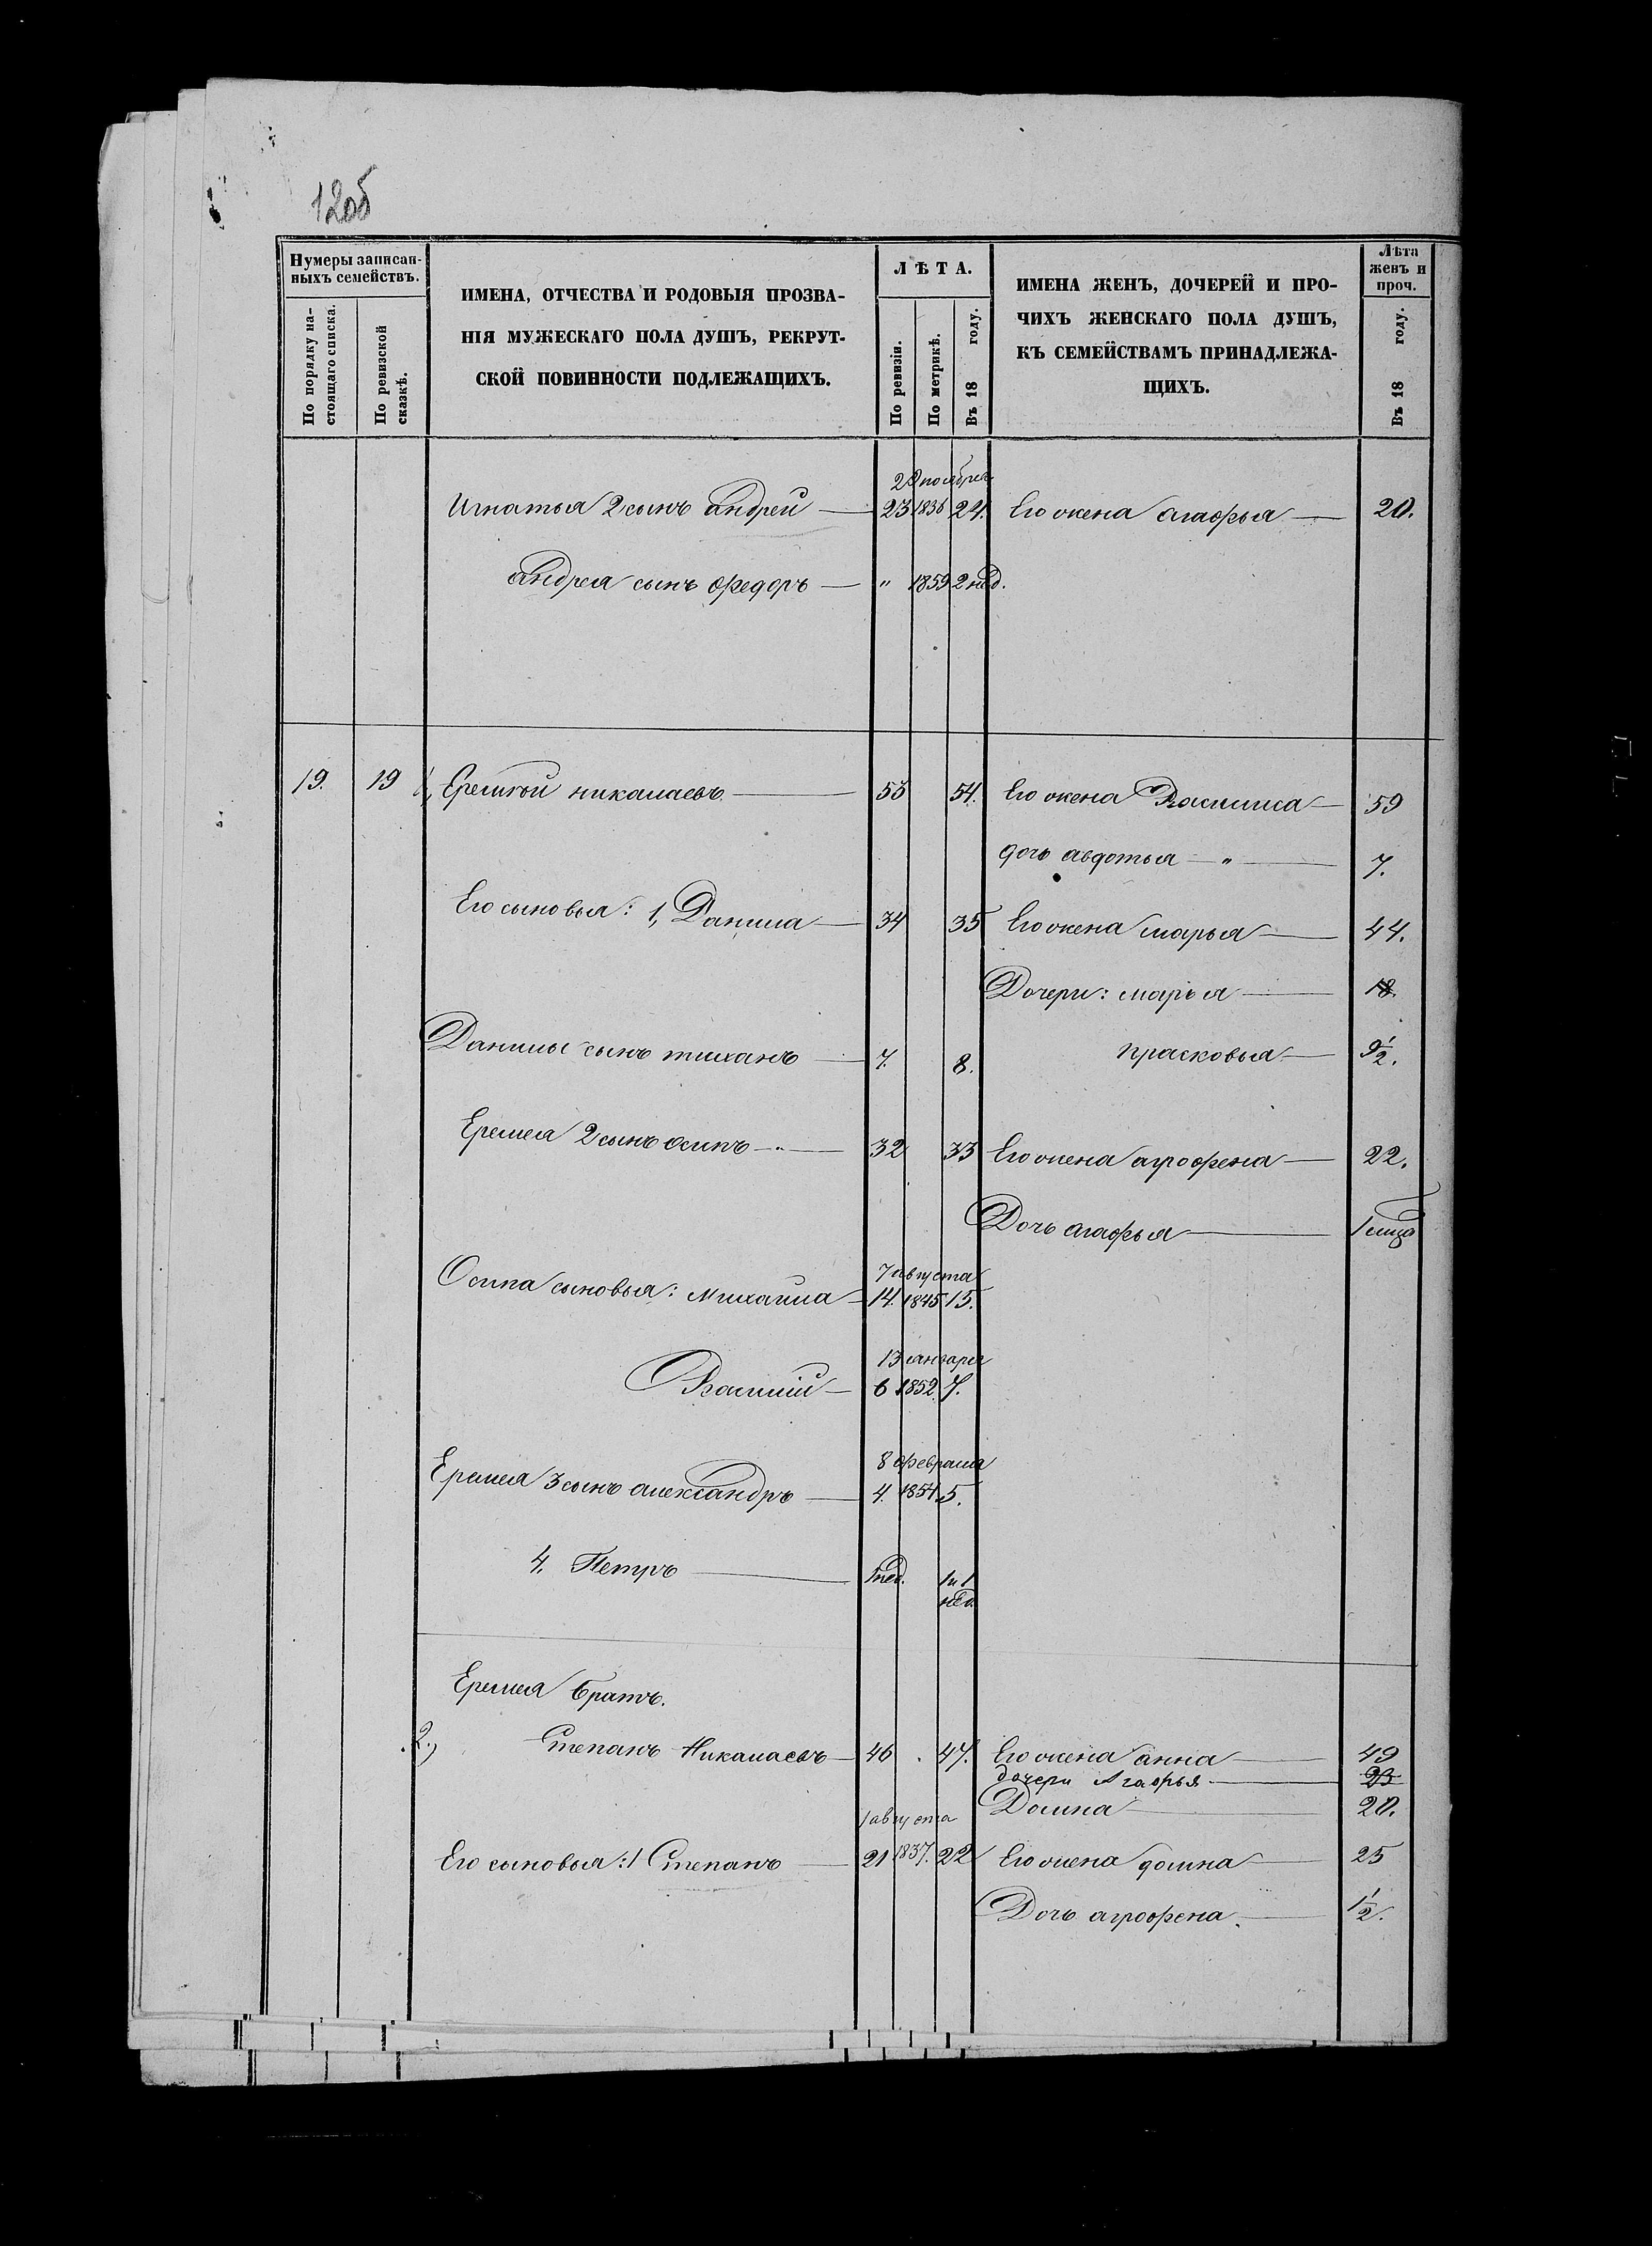 12об
Нумеры записан-
ныхъ семействъ.
По порядку на-
стоящаго списка.
По ревизской
сказкѣ.
ИМЕНА, ОТЧЕСТВА И РОДОВЫЯ ПРОЗВА-
НІЯ МУЖЕСКАГО ПОЛА ДУШЪ, РЕКРУТ-
СКОЙ ПОВИННОСТИ ПОДЛЕЖАЩИХЪ.
ЛѢТА.
По ревизіи.
По метрикѣ.
Въ 18 году.
ИМЕНА ЖЕНЪ, ДОЧЕРЕЙ И ПРО-
ЧИХЪ ЖЕНСКАГО ПОЛА ДУШЪ,
КЪ СЕМЕЙСТВАМЪ ПРИНАДЛЕЖА-
ЩИХЪ.
Лѣта
женъ и
проч.
Въ 18 году.
ноября
Игнатья 2 сынъ андрей — 23 1836 24. Его жена агафья — 20.
андрея сынъ федоръ — " 1859 2 нед.
19. 19 1, Еремѣй николаевъ — 53 54. Его жена Василиса — 59
дочь авдотья — " — 7.
Его сыновья: 1, Данила — 34 35 Его жена марья — 44.
Дочери: марья — 18.
Данилы сынъ тиханъ — 7. 8. прасковья — 9 1/2.
Еремея 2 сынъ осипъ — " — 32 33 Его жена аграфена — 22.
Дочь агафья — 1 мѣца
7 августа
Осипа сыновья: михайла — 14. 1845 15.
13 января
Василій — 6 1852. 7.
8 февраля
Еремея 3 сынъ александръ — 4. 1854. 5.
4. Петръ — 1 нед. 1 и 1
нед.
Еремея братъ.
2.) Степанъ Николаевъ — 46 . 47. Его жена анна — 49
дочери Агафья — 23
Домна — 20.
1 августа
Его сыновья: 1 Степанъ — 21 1837. 22 Его жена домна — 25
Дочь аграфена. — 1 1/2.